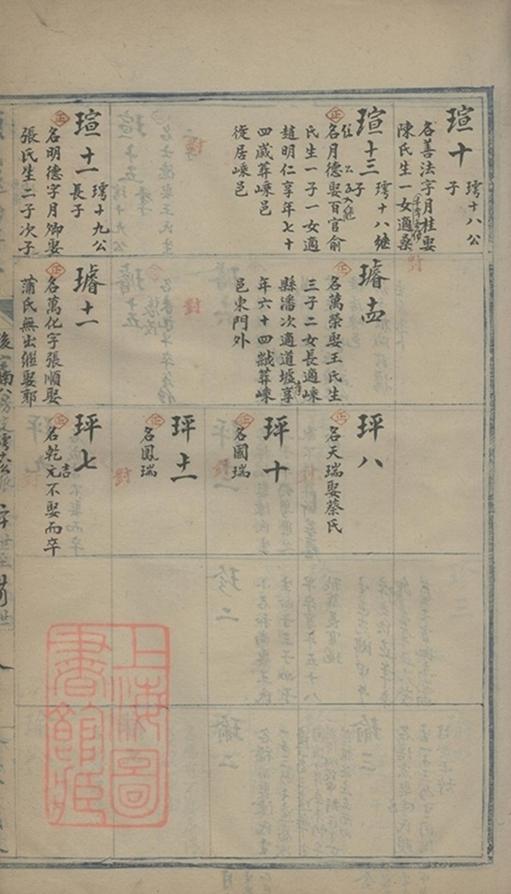 瑄十
璹十八公
子
名善法字月桂娶
陳氏生一女適桑
瑄十三
璹十八繼
子
名月德娶百官俞
氏生一子一女適
趙明仁享年七十
四歲葬嵊邑
徙居嵊邑
瑄十一
璹十九公
長子
名明德字月卿娶
張氏生二子次子
名萬榮娶王氏生
三子二女長適嵊
縣潘次適道墟享
年六十四歲葬嵊
邑東門外
璿十一
名萬化字張順娶
蒲氏無出繼娶郭
坪八
名天瑞娶蔡氏
坪十
名國瑞
坪十一
名鳳瑞
坪七
名乾元不娶而卒
上海圖
書館藏